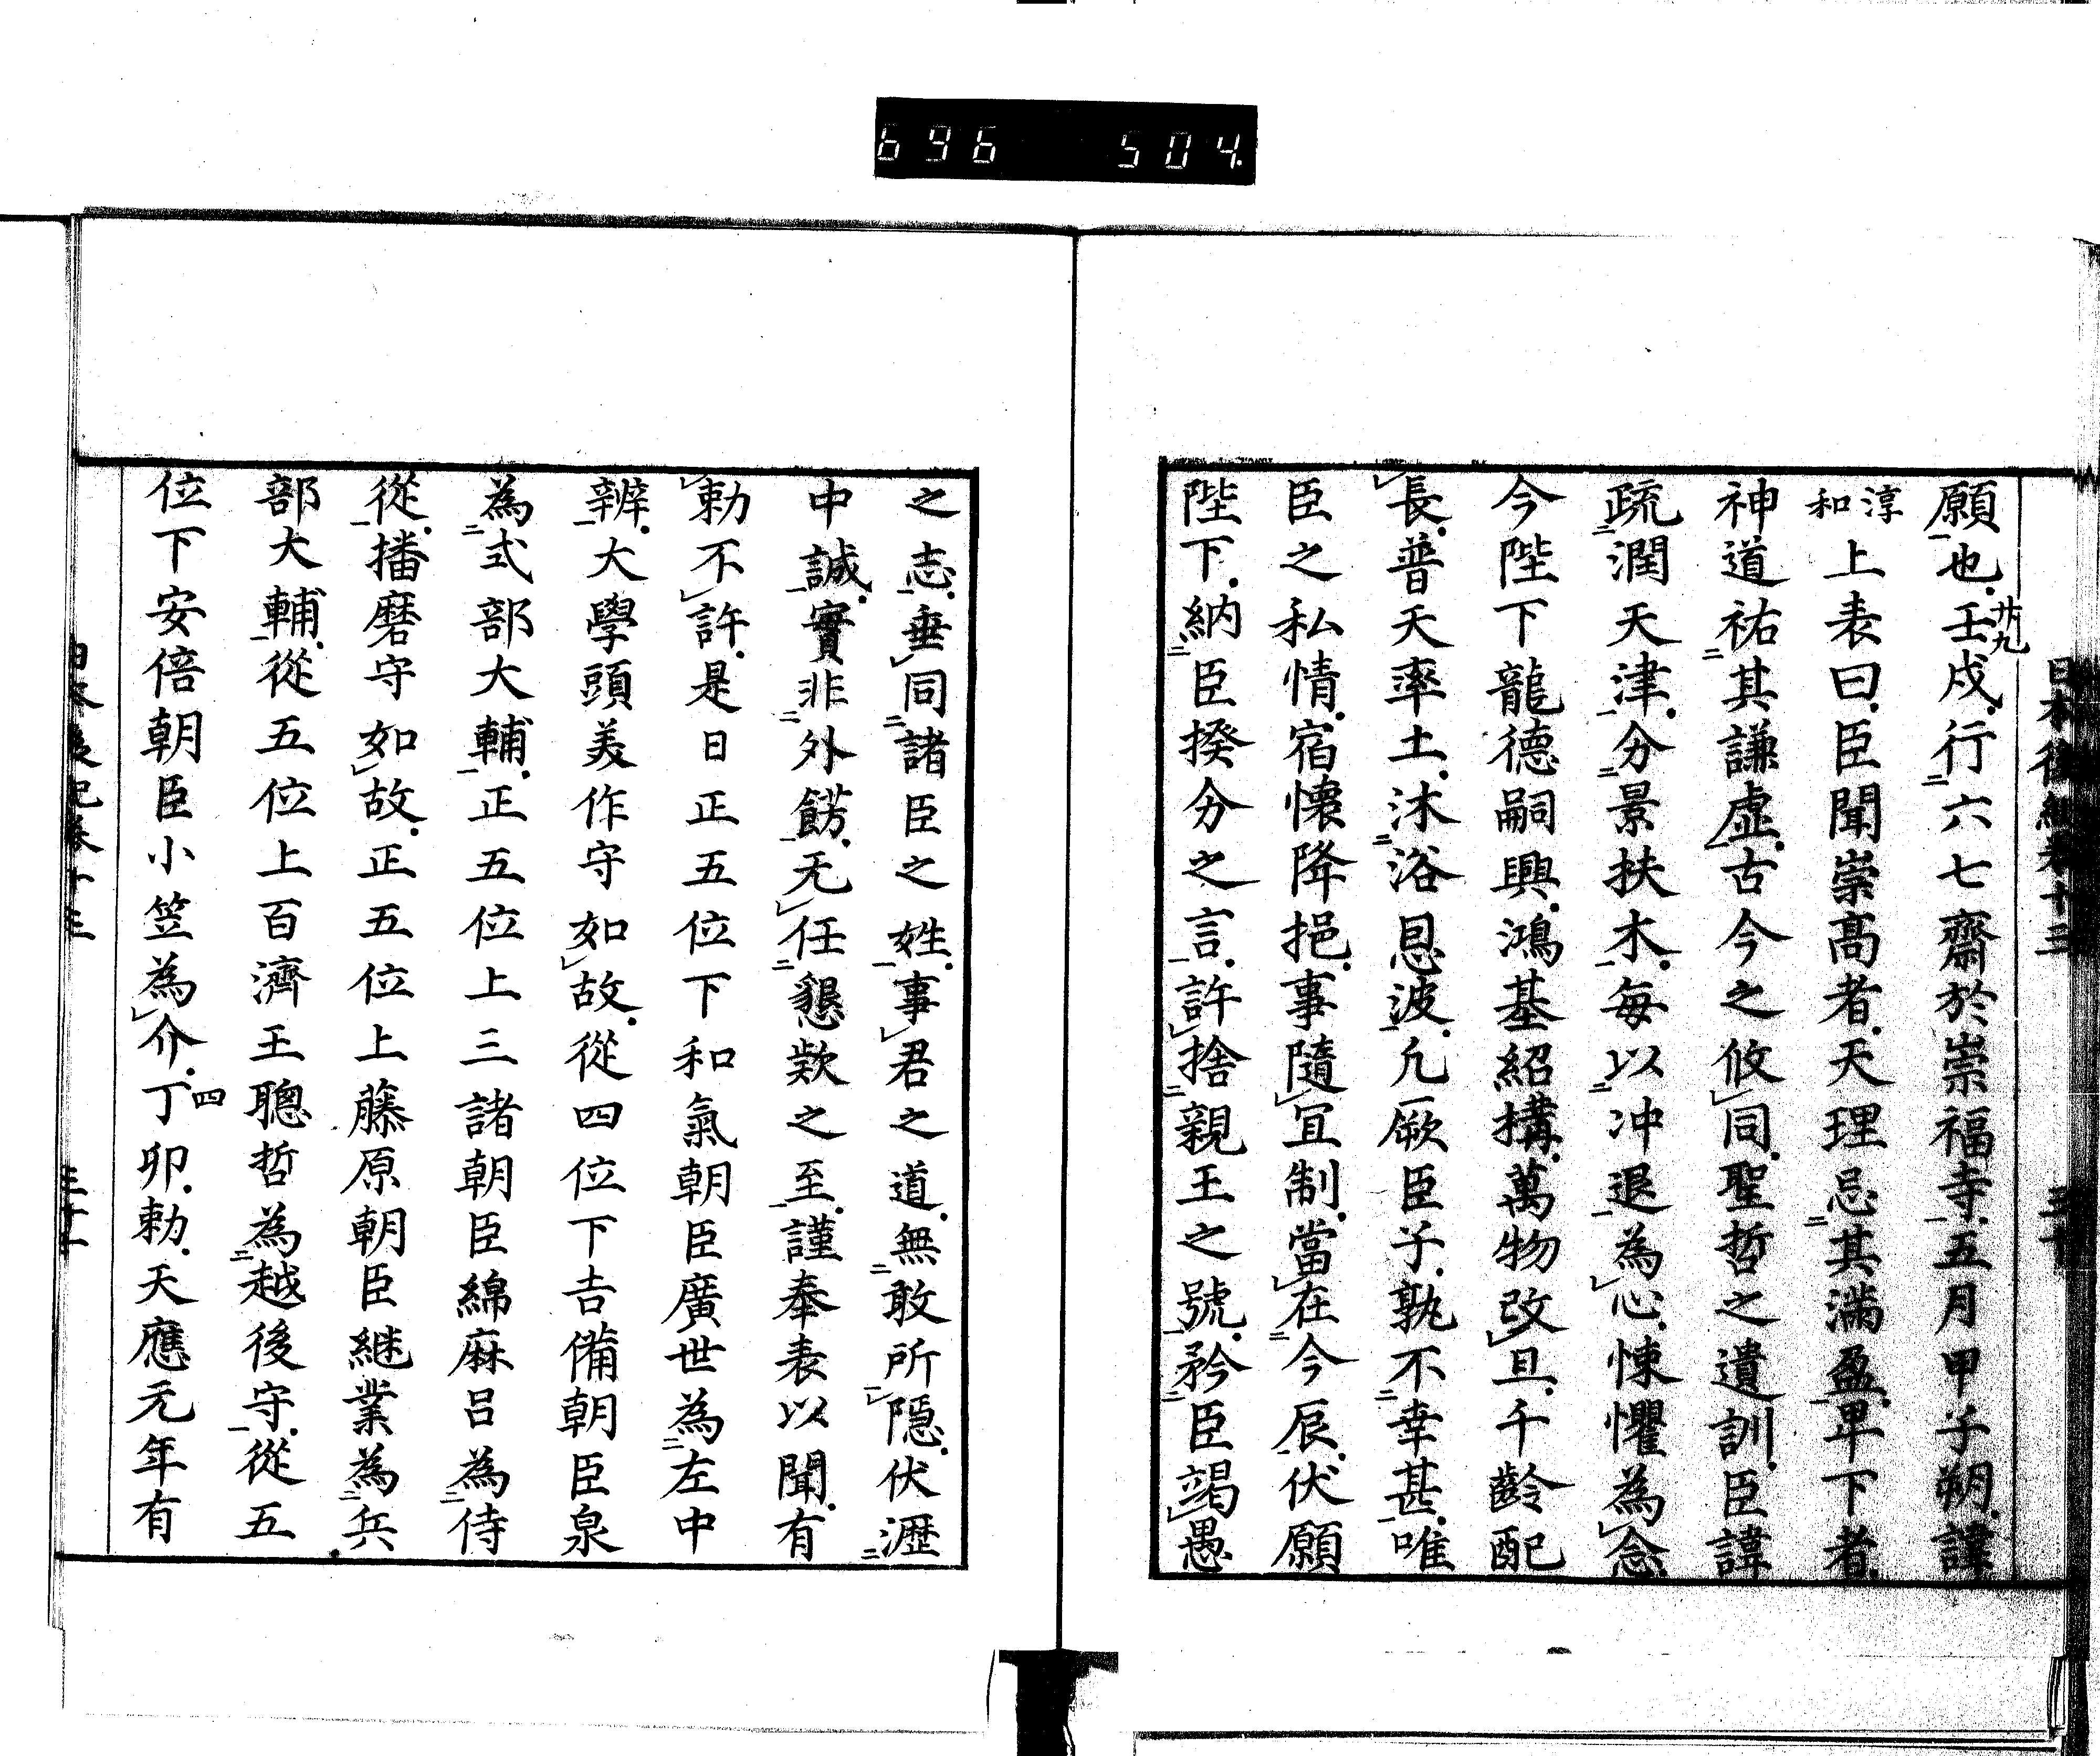 696 504
日本後紀卷十三
願也壬戌行六七齋於崇福寺五月甲子朔諱
廿九
淳和上表曰臣聞崇高者天理忌其滿盈卑下者
神道祐其謙虛古今之攸同聖哲之遺訓臣諱
疏潤天津分景扶木每以冲退為心悚懼為念
今陛下龍德嗣興鴻基紹構萬物改旦千齡配
長普天率土沐浴恩波凢厥臣子孰不幸甚唯
臣之私情宿懷降挹事隨冝制當在今辰伏願
陛下納臣揆分之言許捨親王之號矜臣竭愚
之志垂同諸臣之姓事君之道無敢所隱伏瀝
中誠實非外餝无任懇欵之至謹奉表以聞有
勅不許是日正五位下和氣朝臣廣世為左中
辨大學頭美作守如故從四位下吉備朝臣泉
為式部大輔正五位上三諸朝臣綿麻呂為侍
從播磨守如故正五位上藤原朝臣継業為兵
部大輔從五位上百濟王聰哲為越後守從五
位下安倍朝臣小笠為介丁卯勅天應元年有
四
日本後紀卷十三